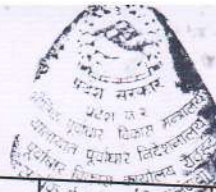 प्रदेश सरकार
प्रदेश नं २
भौतिक पूर्वाधार विकास मन्त्रालय
यातायात पूर्वाधार निर्देशनालय
पूर्वाधार विकास कार्यालय